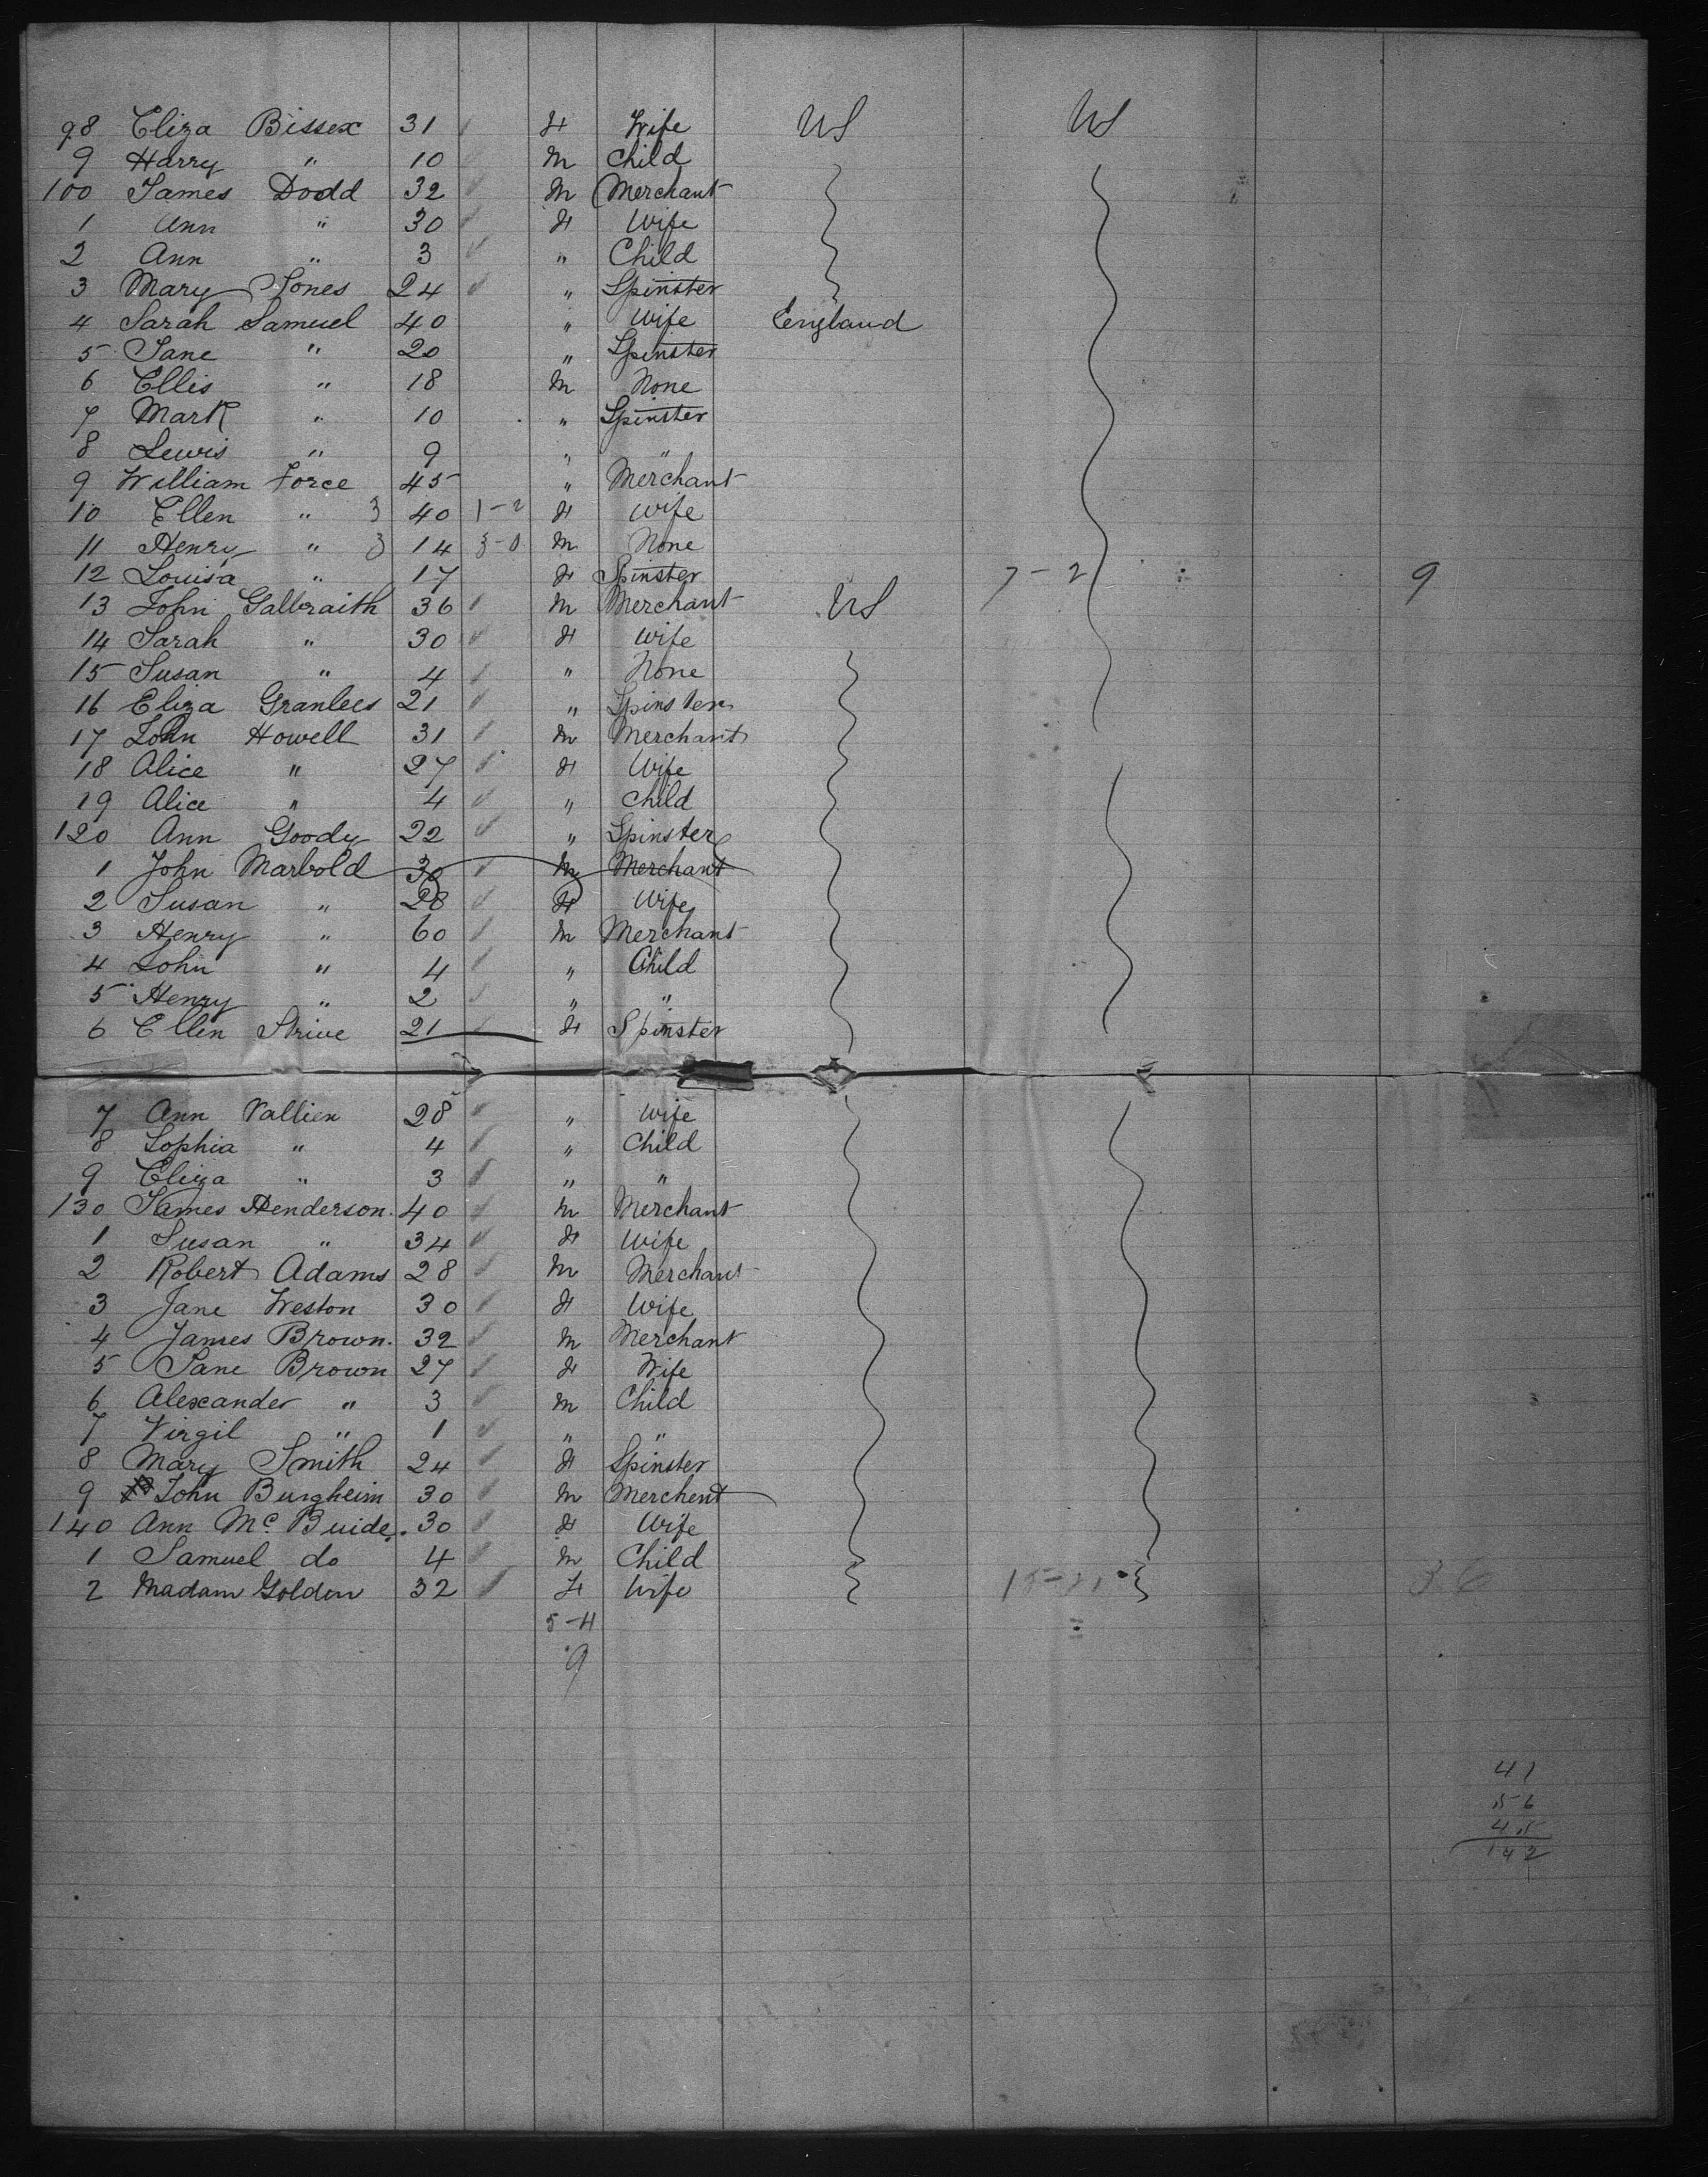 98 Eliza Bissex 31 F Wife US US
9 Harry " 10 M Child
100 James Dodd 32 M Merchant
1 Ann " 30 F Wife
2 Ann " 3 " Child
3 Mary Jones 24 " Spinster
4 Sarah Samuel 40 " Wife England
5 Jane " 20 " Spinster
6 Ellis " 18 M None
7 Mark " 10 " Spinster
8 Lewis " 9 " "
9 William Force 45 " Merchant
10 Ellen " 3 40 1-2 F Wife
11 Henry " 3 14 3-0 M None
12 Louisa " 17 F Spinster 7-2 9
13 John Galbraith 36 M Merchant US
14 Sarah " 30 F Wife
15 Susan " 4 " None
16 Eliza Granlees 21 " Spinster
17 John Howell 31 M Merchant
18 Alice " 27 F Wife
19 Alice " 4 " Child
120 Ann Goody 22 " Spinster
1 John Marbold 30 M Merchant
2 Susan " 28 F Wife
3 Henry " 60 M Merchant
4 John " 4 " Child
5 Henry " 2 " "
6 Ellen Strive 21 F Spinster
7 Ann Vallien 28 " Wife
8 Sophia " 4 " Child
9 Eliza " 3 " "
130 James Henderson. 40 M Merchant
1 Susan " 34 F Wife
2 Robert Adams 28 M Merchant
3 Jane Weston 30 F Wife
4 James Brown. 32 M Merchant
5 Jane Brown 27 F Wife
6 Alexander " 3 M Child
7 Virgil " 1 " "
8 Mary Smith 24 F Spinster
9 John Burgheim 30 M Merchent
140 Ann Mc Buide. 30 F Wife
1 Samuel do 4 M Child
2 Madam Golden 32 F Wife 15-21 36
5-4
9
41
56
45
142